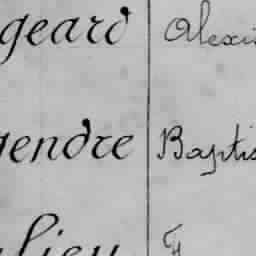 geard Alexis
gendre Baptis
lieu F